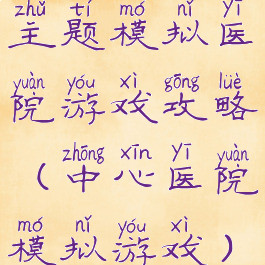 zhǔ tí mó nǐ yī
主题模拟医
yuàn yóu xì gōng lüè
院游戏攻略
zhōng xīn yī yuàn
(中心医院
mó nǐ yóu xì
模拟游戏)